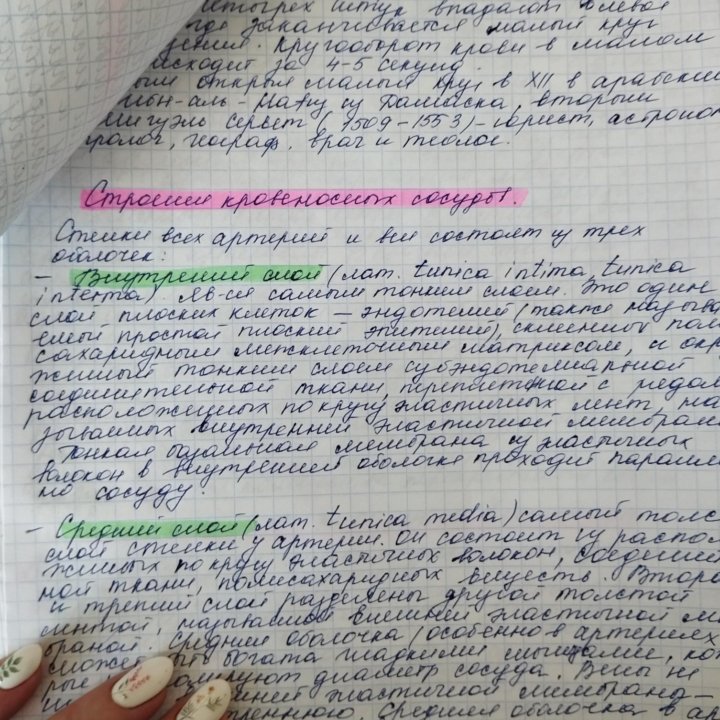 штук впадают в левое
где заканчивается малый круг
Кругооборот крови в малом
за 4-5 секунд.
открыл малый круг в XII в арабский
Ибн-аль-Нафиз из Дамаска, вторым
Мигуэль Сервет (1509-1553)-юрист, астроном
географ, врач и теолог.
Строение кровеносных сосудов.
Стенки всех артерий и вен состоят из трех
оболочек:
- Внутренний слой (лат. tunica intima, tunica
interna). Яв-ся самым тонким слоем. Это один
слой плоских клеток - эндотелий (также называ
емый простой плоский эпителий), склеенных пол
сахаридным межклеточным матриксом, и окру
женный тонким слоем субэндотелиальной
соединительной ткани, переплетённой с рядом
расположенных по кругу эластичных лент, на
зываемых внутренней эластичной мембраной
Тонкая базальная мембрана из эластичных
волокон в внутренней оболочке проходит паралле
но сосуду.
- Средний слой (лат. tunica media) самый толст
слой стенки у артерии. Он состоит из распол
женных по кругу эластичных волокон, соедини
ной ткани, полисахаридных веществ. Второ
и третий слой разделены другой толстой
лентой, называемой внешней эластичной ме
браной. Средняя оболочка (особенно в артериях
может быть богата гладкими мышцами, ко
рые диаметр сосуда. Вены не
эластичной мембраны-
Средняя оболочка в ар